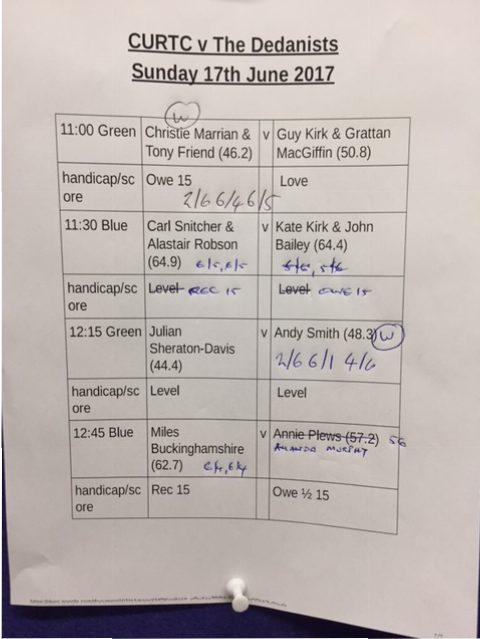 CURTC v The Dedanists
Sunday 17th June 2017
W
11:00 Green Christie Marrian & v Guy Kirk & Grattan
Tony Friend (46.2) MacGiffin (50.8)
handicap/sc Owe 15 Love
ore 2/6 6/4 6/5
11:30 Blue Carl Snitcher & v Kate Kirk & John
Alastair Robson Bailey (64.4)
(64.9) 6/5, 6/5 5/6, 5/6
handicap/sc Level REC 15 Level OWE 15
ore
12:15 Green Julian v Andy Smith (48.3) W
Sheraton-Davis 2/6 6/1 4/6
(44.4)
handicap/sc Level Level
ore
12:45 Blue Miles v Annie Plews (57.2) 56
Buckinghamshire AMANDA MURPHY
(62.7) 6/4, 6/4
handicap/sc Rec 15 Owe ½ 15
ore